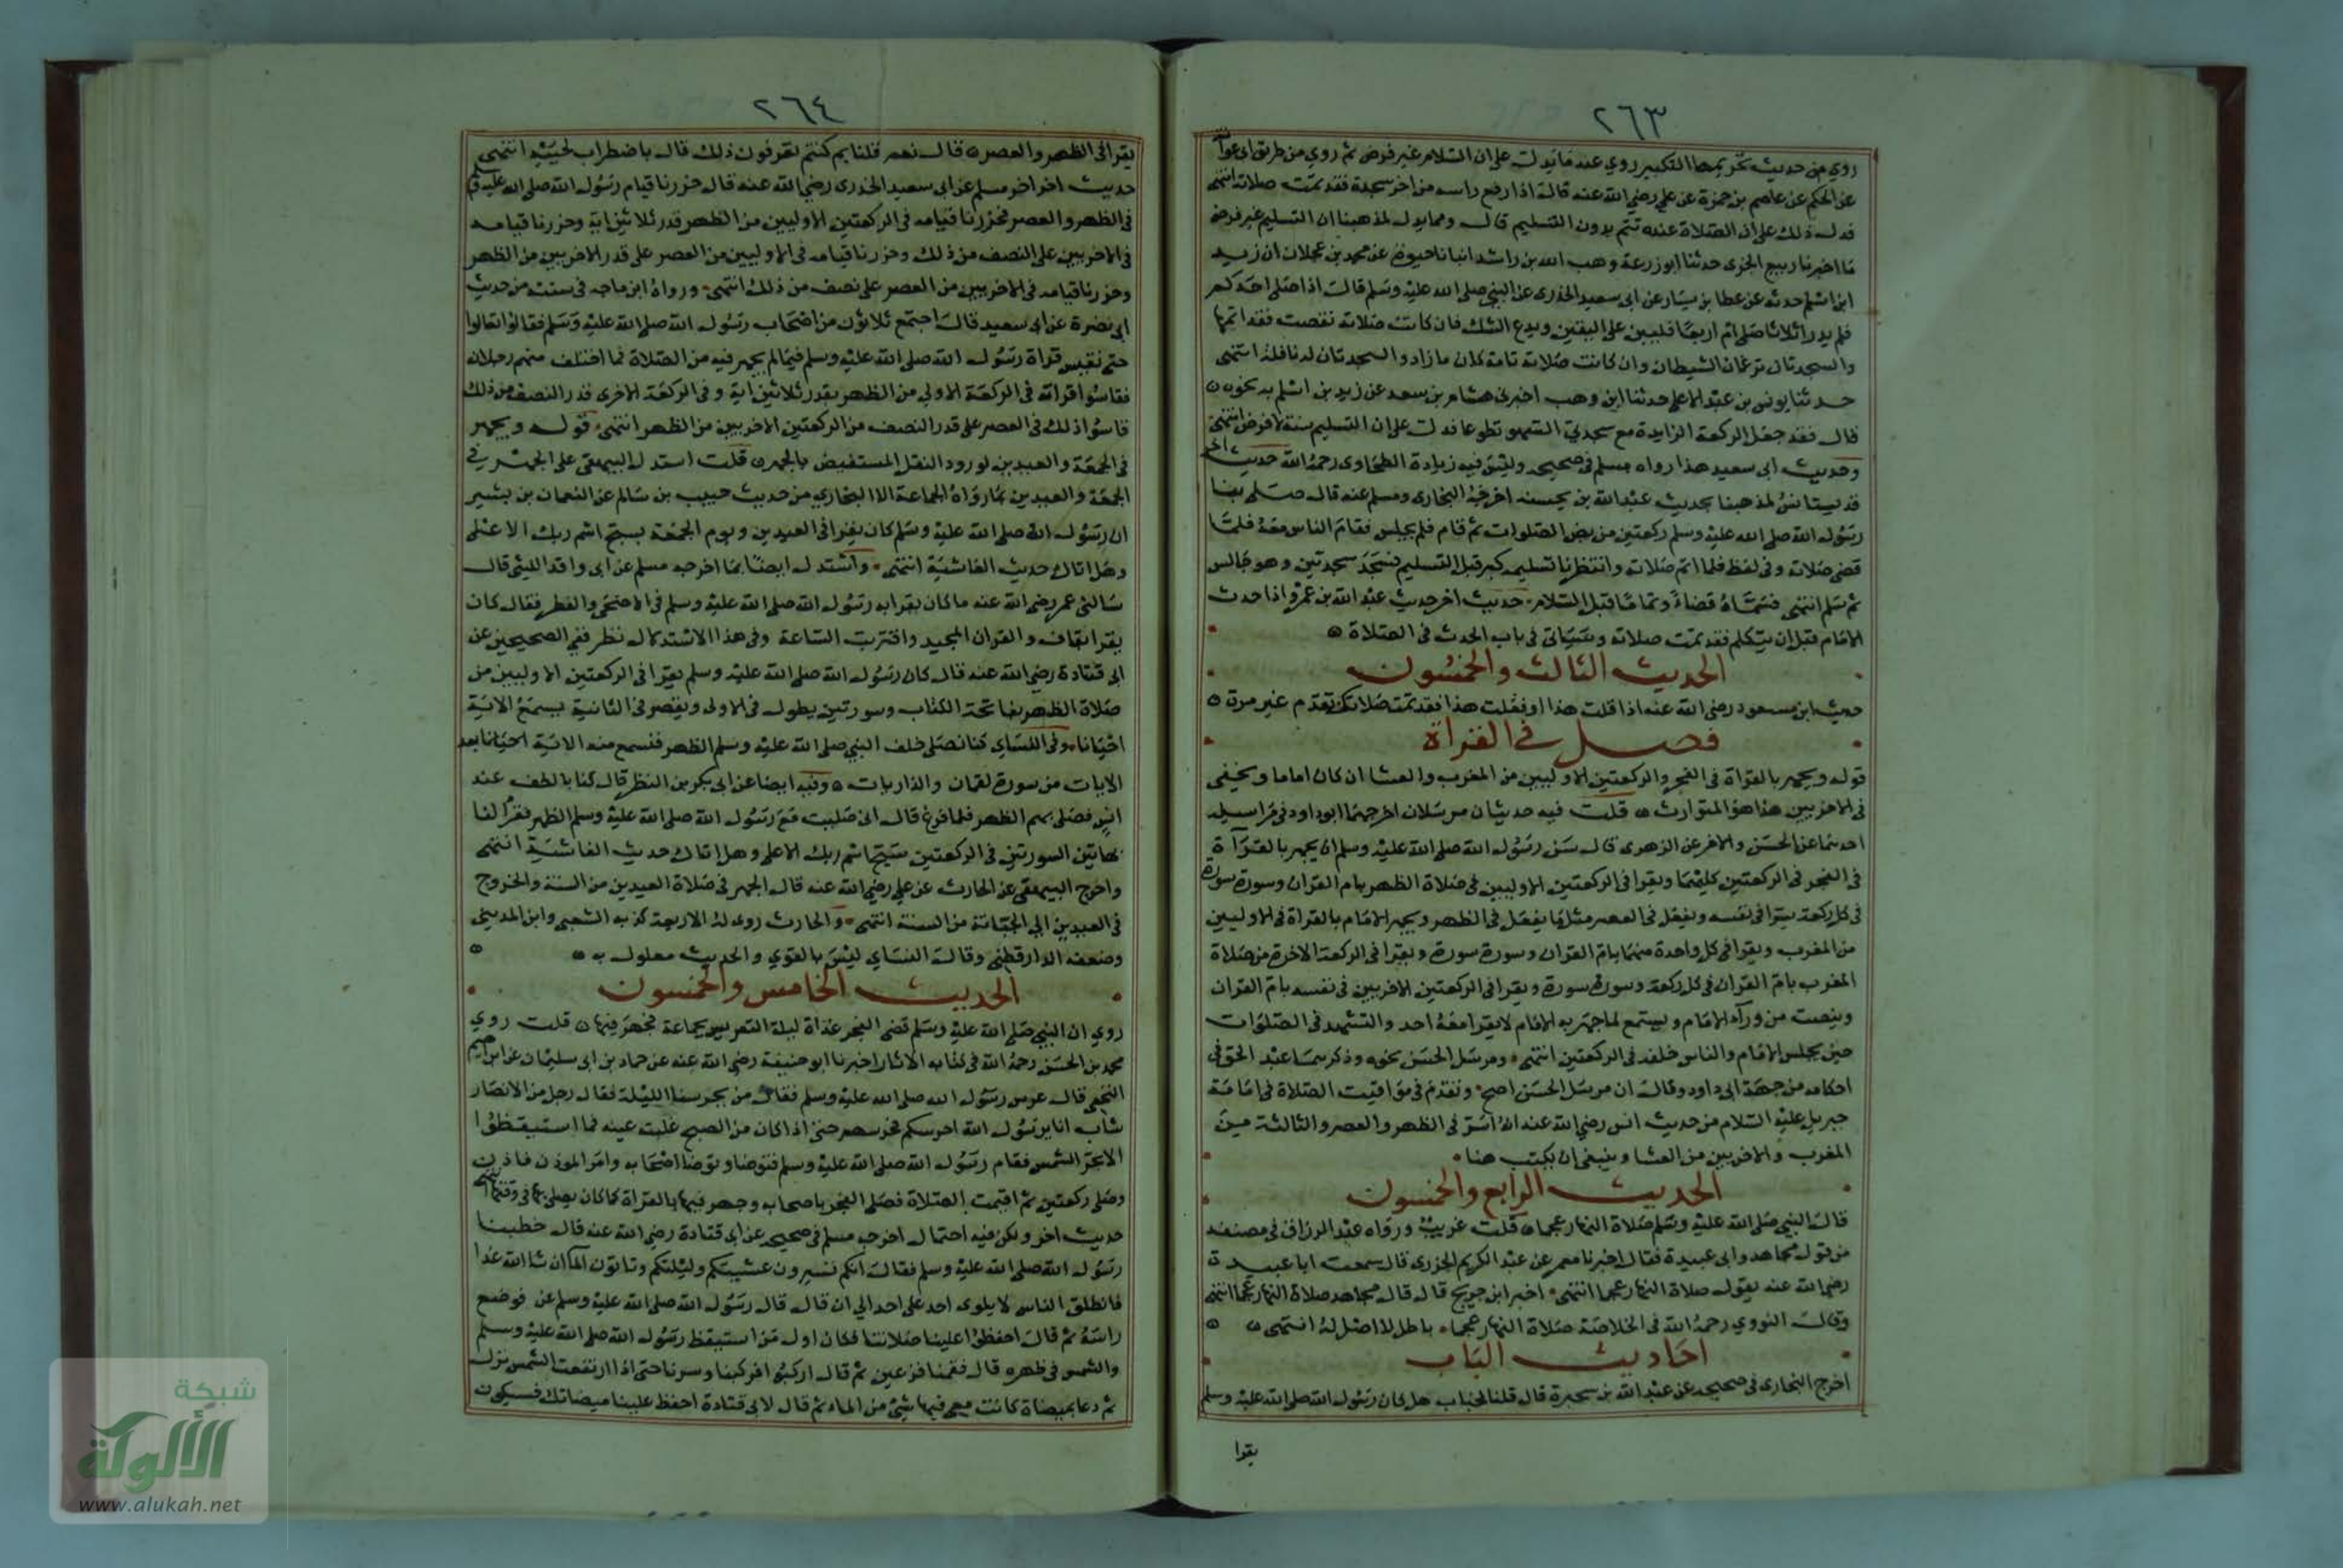 ٢٦٣
روي من حديث تحريمها التكبير روي عنه ما يدل على ان السلام غير فرض ثم روي من طريق ابي عوانة
عن الحكم عن عاصم بن ضمرة عن علي رضي الله عنه قال اذا رفع راسه من اخر سجدة فقد تمت صلاته انتهى
فدل ذلك على ان الصلاة عنده تتم بدون التسليم قال ومما يدل لمذهبنا ان التسليم غير فرض
ما اخبرنا ربيع الجيزى حدثنا ابو زرعة وهب الله بن راشد انبانا حيوة عن محمد بن عجلان ان زيد
ابن اسلم حدثه عن عطا بن يسار عن ابي سعيد الخدرى عن النبي صلى الله عليه وسلم قال اذا صلى احدكم
فلم يدر اثلاثا صلى ام اربعا فليبن على اليقين ويدع الشك فان كانت صلاته نقصت فقد اتمها
والسجدتان ترغمان الشيطان وان كانت صلاته تامة كان ما زاد والسجدتان له نافلة انتهى
حدثنا يونس بن عبد الاعلى حدثنا ابن وهب اخبرني هشام بن سعد عن زيد بن اسلم به نحوه
قال فقد جعل الركعة الزايدة مع سجدتي السهو تطوعا فدل على ان التسليم سنة لا فرض انتهى
وحديث ابي سعيد هذا رواه مسلم في صحيحه وليس فيه زيادة الطحاوى رحمه الله حديث اخر
قد يستانس لمذهبنا بحديث عبد الله بن بحينه اخرجه البخارى ومسلم عنه قال صلى بنا
رسول الله صلى الله عليه وسلم ركعتين من بعض الصلوات ثم قام فلم يجلس فقام الناس معه فلما
قضى صلاته وفي لفظ فلما اتم صلاته وانتظرنا تسليمه كبر قبل التسليم فسجد سجدتين وهو جالس
ثم سلم انتهى فسماه قضاء وتماما قبل السلام حديث اخر حديث عبد الله بن عمرو اذا حدث
الامام قبل ان يتكلم فقد تمت صلاته وسياتي في باب الحدث في الصلاة
الحديث الثالث والخمسون
حديث ابن مسعود رضي الله عنه اذا قلت هذا او فعلت هذا فقد تمت صلاتك تقدم غير مرة
فصل في القراة
قوله ويجهر بالقراة في الفجر والركعتين الاوليين من المغرب والعشا ان كان اماما ويخفي
في الاخريين هذا هو المتوارث قلت فيه حديثان مرسلان اخرجهما ابو داود في مراسيله
احدهما عن الحسن والاخر عن الزهرى قال سن رسول الله صلى الله عليه وسلم ان يجهر بالقراة
في الفجر في الركعتين كليهما ويقرا في الركعتين الاوليين في صلاة الظهر بام القران وسورة سورة
في كل ركعة سرا في نفسه ويفعل في العصر مثل ما يفعل في الظهر ويجهر الامام بالقراة في الاوليين
من المغرب ويقرا في كل واحدة منهما بام القران وسورة سورة ويقرا في الركعة الاخرة من صلاة
المغرب بام القران في كل ركعة وسورة سورة ويقرا في الركعتين الاخريين في نفسه بام القران
وينصت من ورآء الامام ويستمع لما جهر به الامام لا يقرا معه احد والتشهد في الصلوات
حين يجلس الامام والناس خلفه في الركعتين انتهى ومرسل الحسن نحوه وذكرهما عبد الحق في
احكامه من جهة ابي داود وقال ان مرسل الحسن اصح وتقدم في مواقيت الصلاة في امامة
جبريل عليه السلام من حديث انس رضي الله عنه انه اسر في الظهر والعصر والثالثة من
المغرب والاخريين من العشا وينبغي ان يكتب هنا
الحديث الرابع والخمسون
قال النبي صلى الله عليه وسلم صلاة النهار عجما قلت غريب ورواه عبد الرزاق في مصنفه
من قول مجاهد وابي عبيدة فقال اخبرنا معمر عن عبد الكريم الجزرى قال سمعت ابا عبيدة
رضي الله عنه يقول صلاة النهار عجما انتهى اخبر ابن جريج قال قال مجاهد صلاة النهار عجما انتهى
وقال النووي رحمه الله في الخلاصة صلاة النهار عجماء باطل لا اصل له انتهى
احاديث الباب
اخرج البخارى في صحيحه عن عبد الله بن سخبرة قال قلنا لخباب هل كان رسول الله صلى الله عليه وسلم
يقرا
٢٦٤
يقرا في الظهر والعصر قال نعم قلنا بم كنتم تعرفون ذلك قال باضطراب لحيته انتهى
حديث اخر اخرج مسلم عن ابي سعيد الخدرى رضي الله عنه قال حزرنا قيام رسول الله صلى الله عليه وسلم
في الظهر والعصر فحزرنا قيامه في الركعتين الاوليين من الظهر قدر ثلاثين اية وحزرنا قيامه
في الاخريين على النصف من ذلك وحزرنا قيامه في الاوليين من العصر على قدر الاخريين من الظهر
وحزرنا قيامه في الاخريين من العصر على نصف من ذلك انتهى ورواه ابن ماجه في سننه من حديث
ابي نضرة عن ابي سعيد قال اجتمع ثلاثون من اصحاب رسول الله صلى الله عليه وسلم فقالوا تعالوا
حتى نقيس قراة رسول الله صلى الله عليه وسلم فيما لم يجهر فيه من الصلاة فما اختلف منهم رجلان
فقاسوا قراته في الركعة الاولي من الظهر بقدر ثلاثين اية وفي الركعة الاخرى قدر النصف من ذلك
قاسوا ذلك في العصر على قدر النصف من الركعتين الاخريين من الظهر انتهى قوله ويجهر
في الجمعة والعيدين لورود النقل المستفيض بالجهر قلت استدل البيهقي على الجهر في
الجمعة والعيدين بما رواه الجماعة الا البخاري من حديث حبيب بن سالم عن النعمان بن بشير
ان رسول الله صلى الله عليه وسلم كان يقرا في العيدين ويوم الجمعة بسبح اسم ربك الاعلى
وهل اتاك حديث الغاشية انتهى واستدل ايضا بما اخرجه مسلم عن ابي واقد الليثي قال
سالني عمر رضي الله عنه ما كان يقرا به رسول الله صلى الله عليه وسلم في الاضحى والفطر فقال كان
يقرا بقاف والقران المجيد واقتربت الساعة وفي هذا الاستدلال نظر ففي الصحيحين عن
ابي قتادة رضي الله عنه قال كان رسول الله صلى الله عليه وسلم يقرا في الركعتين الاوليين من
صلاة الظهر بفاتحة الكتاب وسورتين يطول في الاولى ويقصر في الثانية يسمع الاية
احيانا وفي النساي كنا نصلى خلف النبي صلى الله عليه وسلم الظهر فنسمع منه الاية احيانا بعد
الايات من سورة لقمان والذاريات وفيه ايضا عن ابي بكر بن النضر قال كنا بالطف عند
انس فصلى بهم الظهر فلما فرغ قال انى صليت مع رسول الله صلى الله عليه وسلم الظهر فقرا لنا
بهاتين السورتين في الركعتين سبح اسم ربك الاعلى وهل اتاك حديث الغاشية انتهى
واخرج البيهقي عن الحارث عن علي رضي الله عنه قال الجهر في صلاة العيدين من السنة والخروج
في العيدين الي الجبانة من السنة انتهى والحارث روى له الاربعة كذبه الشعبي وابن المديني
وضعفه الدارقطني وقال النساي ليس بالقوي والحديث معلول به
الحديث الخامس والخمسون
روي ان النبي صلى الله عليه وسلم قضى الفجر غداة ليلة التعريس بجماعة فجهر فيها قلت روي
محمد بن الحسن رحمه الله في كتابه الاثار اخبرنا ابو حنيفة رضي الله عنه عن حماد بن ابي سليمان عن ابراهيم
النخعي قال عرس رسول الله صلى الله عليه وسلم فقال من يحرسنا الليلة فقال رجل من الانصار
شاب انا يرسول الله احرسكم فحرسهم حتى اذا كان من الصبح غلبته عينه فما استيقظوا
الا بحر الشمس فقام رسول الله صلى الله عليه وسلم فتوضا وتوضا اصحابه وامر الموذن فاذن
وصلى ركعتين ثم اقيمت الصلاة فصلى الفجر باصحابه وجهر فيها بالقراة كما كان يصلى بها في وقتها انتهى
حديث اخر ولكن فيه احتمال اخرجه مسلم في صحيحه عن ابي قتادة رضي الله عنه قال خطبنا
رسول الله صلى الله عليه وسلم فقال انكم تسيرون عشيتكم وليلتكم وتاتون الماء ان شا الله غدا
فانطلق الناس لا يلوى احد على احد الي ان قال قال رسول الله صلى الله عليه وسلم عن فوضع
راسه ثم قال احفظوا علينا صلاتنا فكان اول من استيقظ رسول الله صلى الله عليه وسلم
والشمس في ظهره قال فقمنا فزعين ثم قال اركبوا فركبنا وسرنا حتى اذا ارتفعت الشمس نزل
ثم دعا بميضاة كانت معي فيها شئ من الماء ثم قال لابي قتادة احفظ علينا ميضاتك فسيكون
شبكة
الألوكة
www.alukah.net